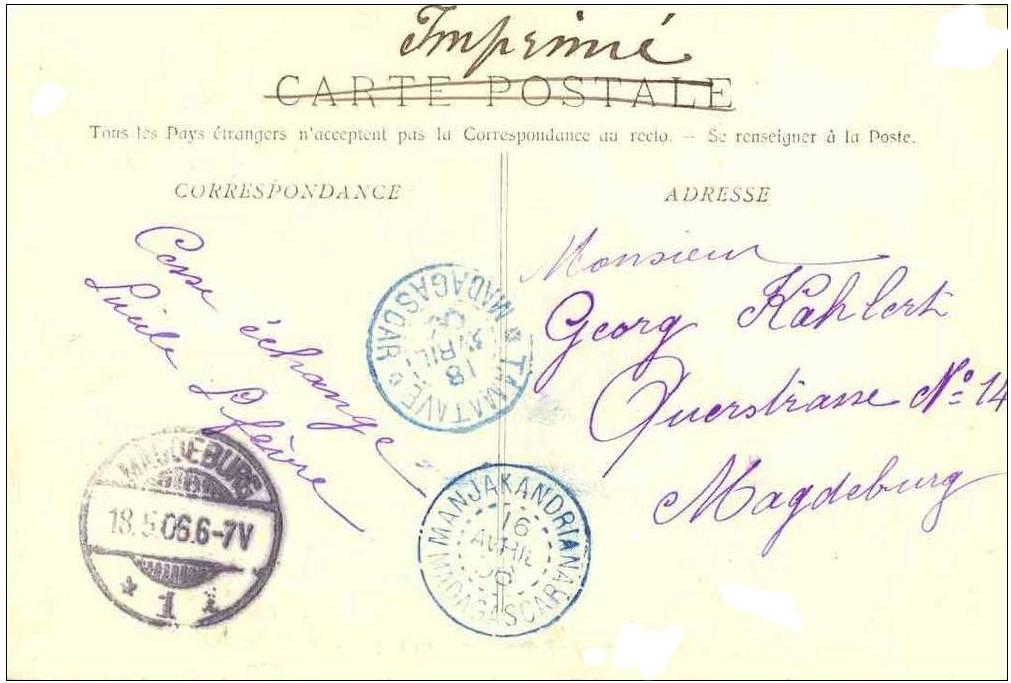 Imprimé
CARTE POSTALE
Tous les Pays étrangers n'acceptent pas la Correspondance au recto. — Se renseigner à la Poste.
CORRESPONDANCE
Cesse échange
Lucile Lefèvre
ADRESSE
Monsieur
Georg Kahlert
Querstrasse No 14
Magdeburg
TAMATAVE
18
AVRIL
06
MADAGASCAR
MANJAKANDRIANA
16
AVRIL
06
MADAGASCAR
MAGDEBURG
18.5.06.6-7V
* 1 i